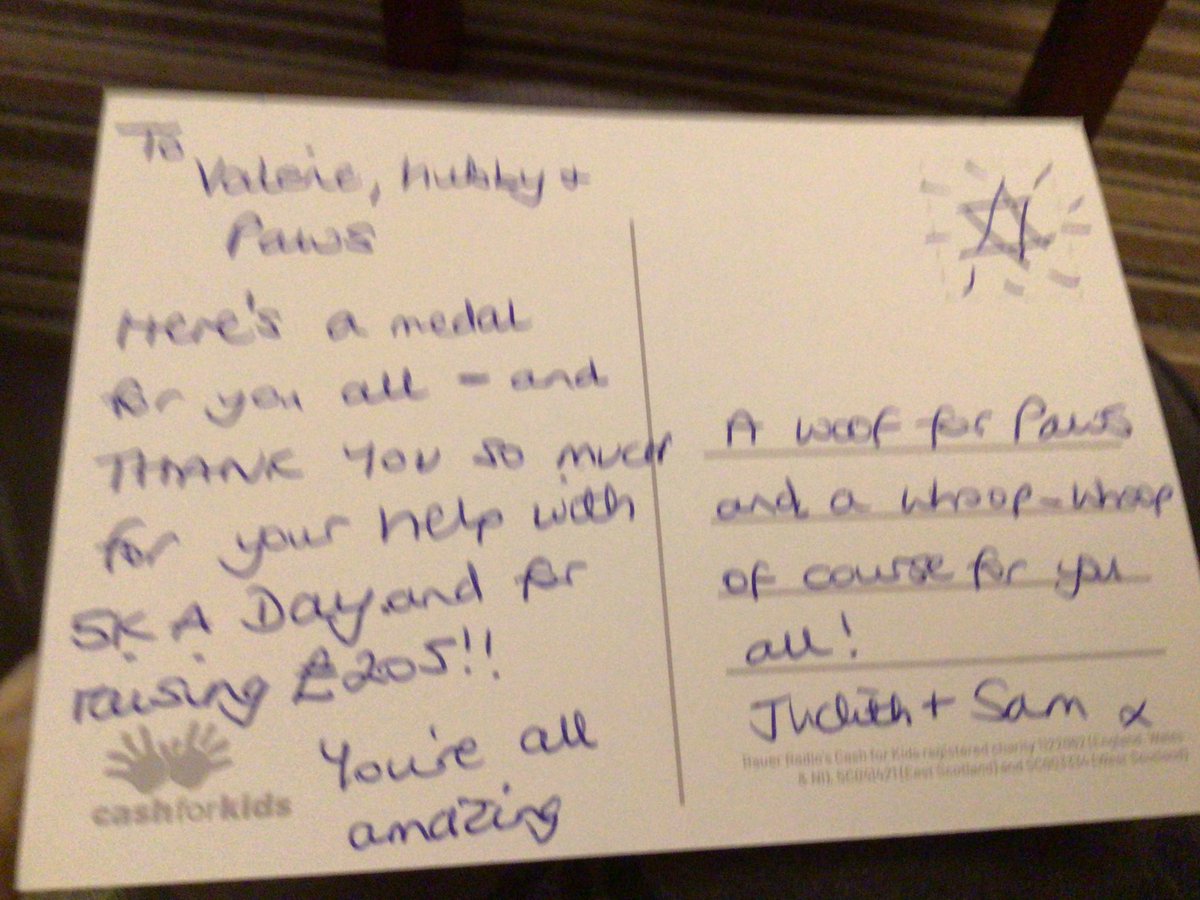 To
Valerie, hubby +
Paws
Here's a medal
for you all - and
THANK YOU so much
for your help with
5K A Day and for
raising £205!!
You're all
amazing
cashforkids
A woof for Paws
and a whoop-whoop
of course for you
all!
Judith + Sam x
Bauer Radio's Cash for Kids registered charity 1122062 (England, Wales
& NI), SC041421 (East Scotland) and SC003334 (West Scotland)